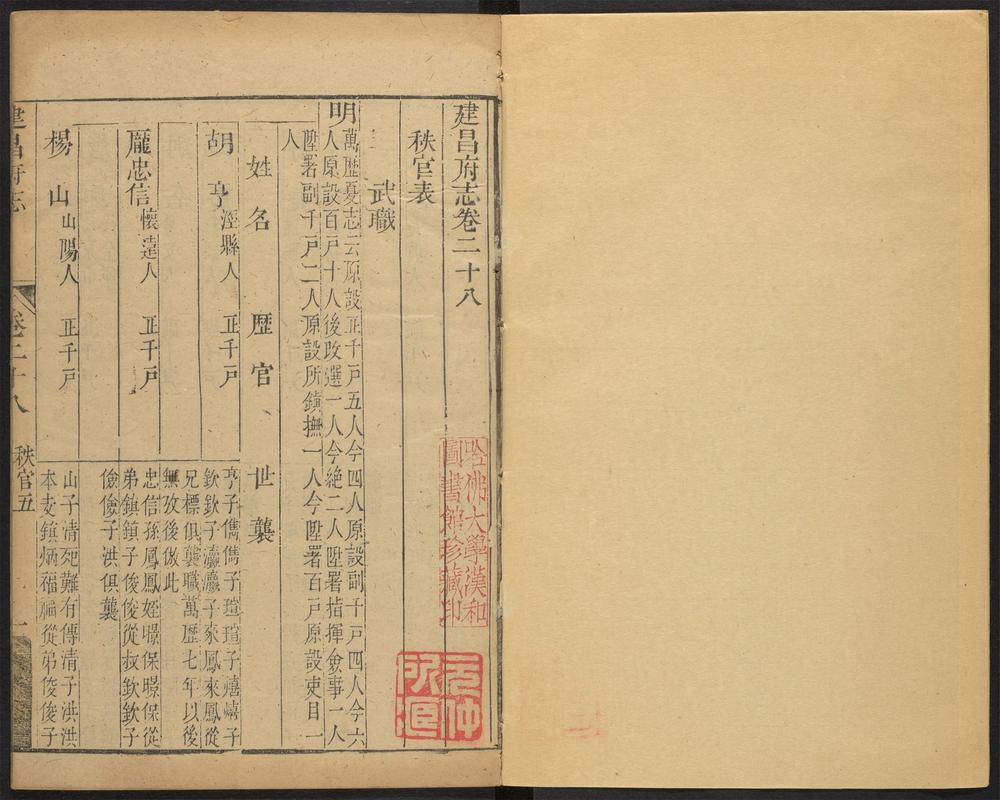 建昌府志卷二十八
秩官表
武職
明萬歷夏志云原設正千戸五人今四人原設副千戸四人今六
人原設百戸十人後改選一人今絶二人陞署指揮僉事一人
陞署副千戸二人原設所鎮撫一人今陞署百戸原設吏目一
人
姓名 歷官 世襲
胡亨 涇縣人 正千戸 亨子儁儁子瑄瑄子熺熺子
欽欽子瀛瀛子來鳳來鳳從
兄標俱襲職萬歷七年以後
無攷後倣此
龎忠信 懷遠人 正千戸 忠信孫鳳鳳姪暻保暻保從
弟鎮鎮子俊俊從叔欽欽子
儉儉子洪俱襲
楊山 山陽人 正千戸 山子清死難有傳清子洪洪
本支鎮炳福福從弟俊俊子
建昌府志 卷二十八 秩官五 一
哈佛大學漢和
圖書館珍藏印